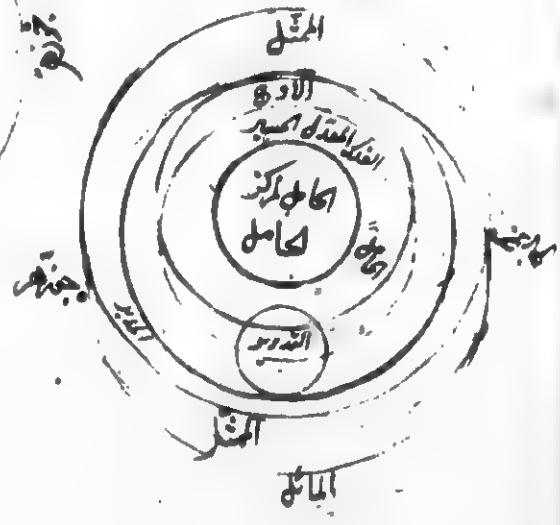 الممثل
الاوج
الفلك المعدل المسير
الحامل لمركز
الحامل
الحامل
جوزهر
المدير
التدوير
المائل